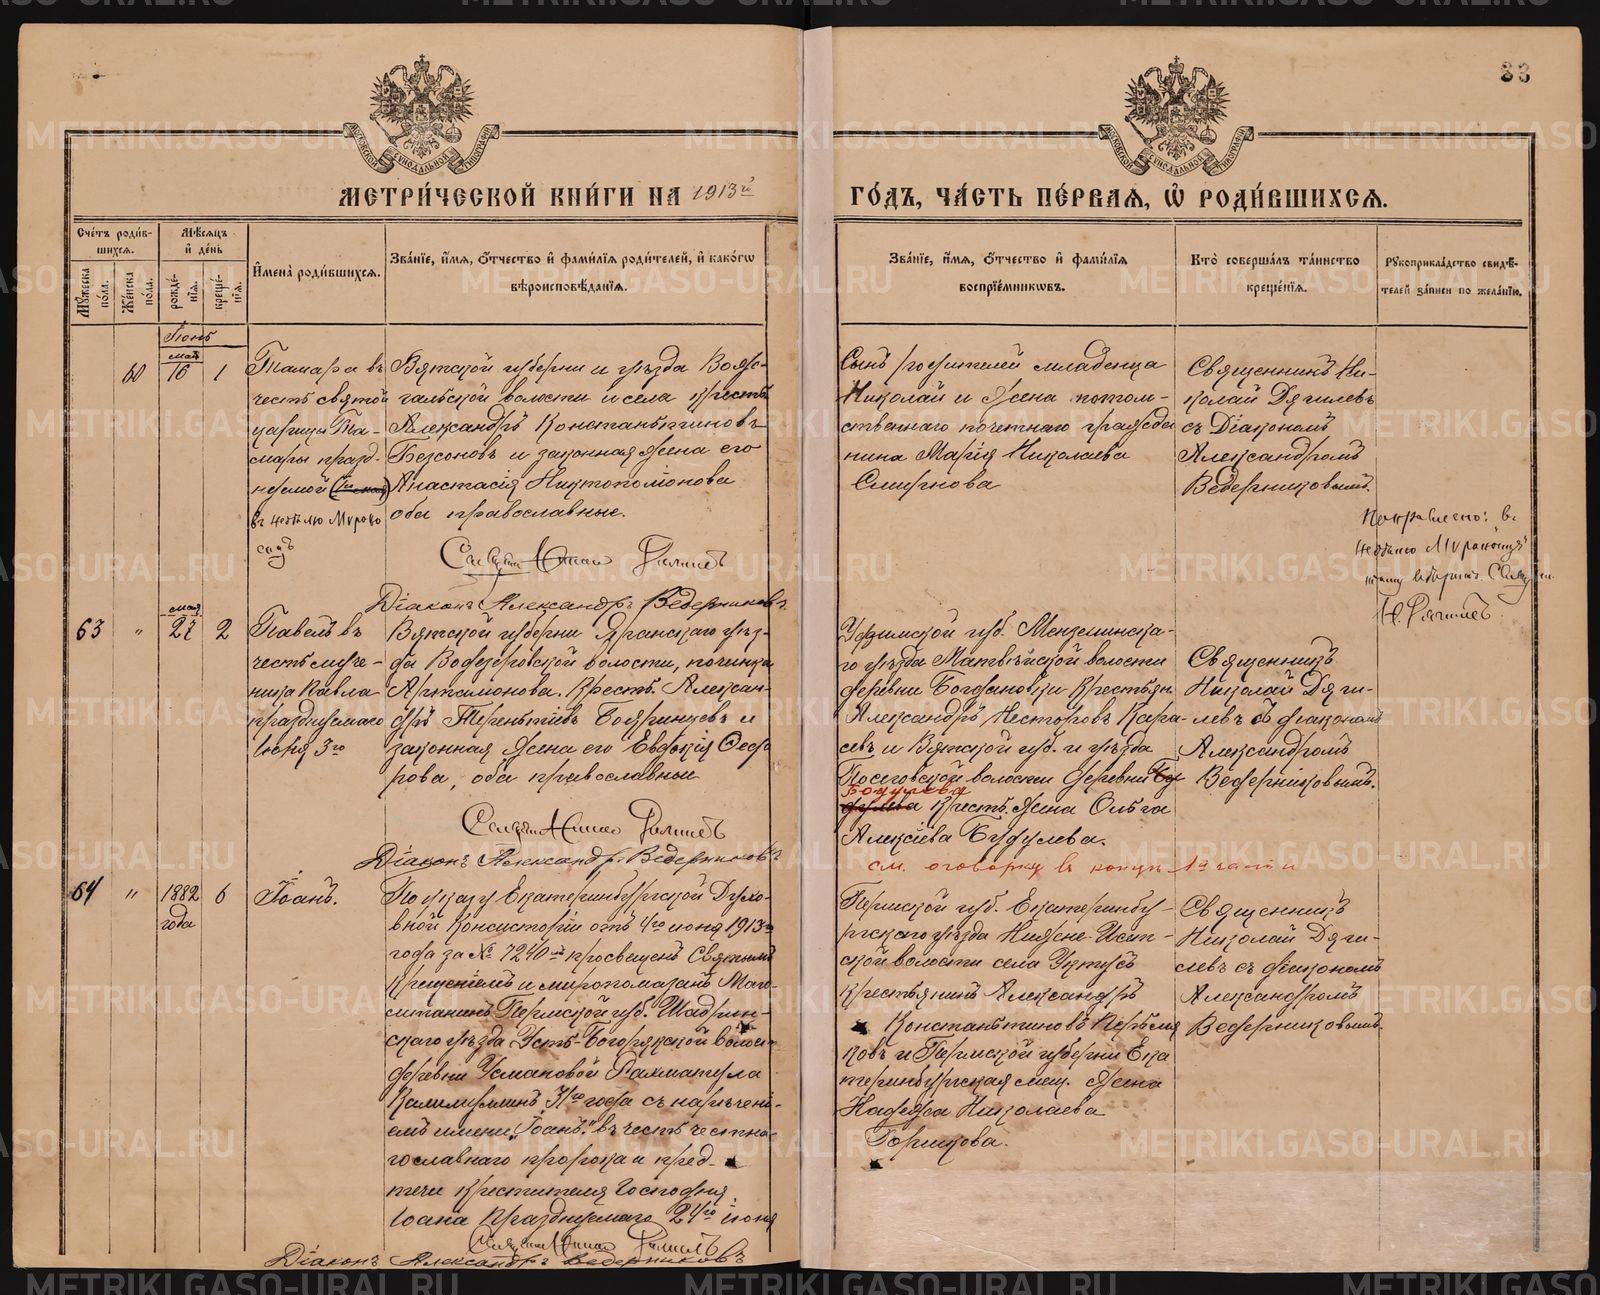 83
МОСКОВСКОЙ СѴНОДАЛЬНОЙ ТИПОГРАФІИ
МОСКОВСКОЙ СѴНОДАЛЬНОЙ ТИПОГРАФІИ
МЕТРИ́ЧЕСКОЙ КНИ́ГИ НА 1913й
ГО́ДЪ, ЧА́СТЬ ПЕ́РВАѦ, Ѡ҆ РОДИ́ВШИХСѦ.
Сче́тъ роди́в-
шихсѧ.
Мꙋ́жеска по́ла.
Же́нска по́ла.
Мѣ́сѧцъ
и҆ де́нь
рожде́-
нїѧ.
креще́-
нїѧ.
И҆мена̀ роди́вшихсѧ.
Зва́нїе, и҆́мѧ, ѻ҆́тчество и҆ фами́лїѧ роди́телей, и҆ како́гѡ
вѣроисповѣ́данїѧ.
Зва́нїе, и҆́мѧ, ѻ҆́тчество и҆ фами́лїѧ
воспрїе́мникѡвъ.
Кто̀ соверша́лъ та́инство
креще́нїѧ.
Рꙋкоприкла́дство свидѣ́-
телей за́писи по жела́нїю.
Іюнь
май
60 16 1
Тамара въ
честь святой
царицы Та-
мары празд-
нуемой
въ неделю Мироно
сицъ
Вятской губерніи и уѣзда Вояс-
гальской волости и села крест.
Александръ Константиновъ
Безсоновъ и законная жена его
Анастасія Никтополіонова
оба православные.
Діаконъ Александръ Ведерниковъ
Сынъ родителей младенца
Николай и жена потом-
ственнаго почетнаго гражда
нина Марія Николаева
Смирнова
Священникъ Ни-
колай Дягилевъ
съ Діакономъ
Александромъ
Ведерниковымъ.
Исправлено: въ
неделю Мироносицъ
63 " май 27 2
Павелъ въ
честь муче-
ника Павла
празднуемаго
Іюня 3го
Вятской губерніи Яранскаго уѣз-
да Водозеровской волости, починка
Артамонова, крест. Алексан-
дръ Терентіевъ Бояринцевъ и
законная жена его Евдокія Федо
рова, оба православные
Діаконъ Александръ Ведерниковъ
Уфимской губ. Мензелинска-
го уѣзда Матвѣйской волости
деревни Богдановки крестьян.
Александръ Несторовъ Кара-
севъ и Вятской губ. и уѣзда
Посеговской волости деревни
Бодулева
крест. жена Ольга
Алексіева Будулева.
см. оговорку въ концѣ 1й части
Священникъ
Николай Дяги-
левъ съ діакономъ
Александромъ
Ведерниковымъ.
64 " 1882 6
года
Іоаннъ.
По указу Екатеринбургской Духо-
вной Консисторіи отъ 4го іюня 1913
года за № 7240 просвещенъ Святымъ
Крещеніемъ и миропомазанъ Маго-
метанинъ Пермской губ. Шадрин-
скаго уѣзда Усть-Богорякской волос-
деревни Усмановой Рахматулла
31го года съ наречені-
емъ имени "Іоаннъ" въ честь честна-
гославнаго пророка и пред-
течи крестителя Господня
Іоана празднуемаго 24го іюня
Діаконъ Александръ Ведерниковъ
Пермской губ. Екатеринбу-
ргскаго уѣзда Нижне-Исет-
ской волости села Уктусъ
крестьянинъ Александръ
Константиновъ
ковъ и Пермской губерніи Ека
теринбургская мещ. жена
Надежда Николаева
Горшкова.
Священникъ
Николай Дяги-
левъ съ діакономъ
Александромъ
Ведерниковымъ.
METRIKI.GASO-URAL.RU